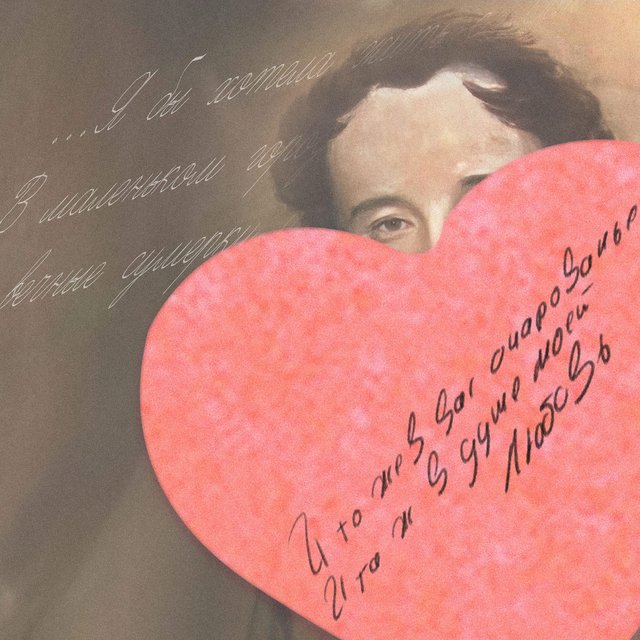 ...Я бы хотела жить
В маленьком горо
вечные сумерки
Что же в вас очарованье
Что ж в душе моей
Любовь